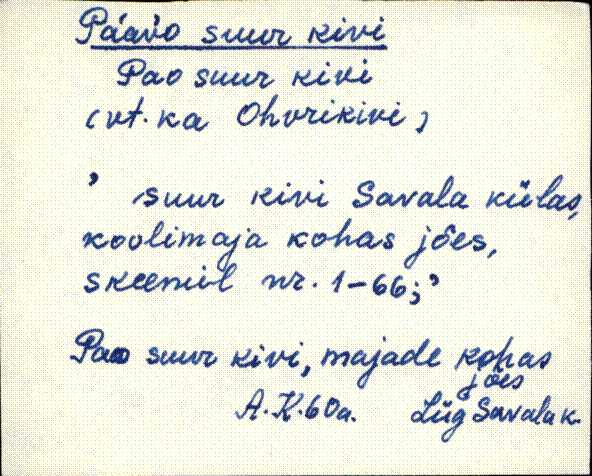 Päävo suur kivi
Pao suur kivi
(vt. ka Ohvrikivi)
' suur kivi Savala külas,
koolimaja kohas jões,
skeemil nr. 1-66;'
Pao suur kivi, majade kohas
jões
A.K. 60a. Lüg Savala k.